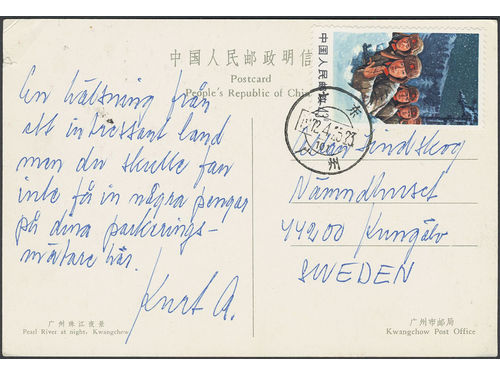 中国人民邮政明信
Postcard
People's Republic of Chin
中国人民邮政
En hälsning från
ett intressant land
men du skulle fan
inte få in några pengar
på dina parkerings-
mätare här.
Kurt A.
72.4.
州
Lindskog
Nämndhuset
44200 Kungälv
SWEDEN
广州珠江夜景
Pearl River at night, Kwangchow
广州市邮局
Kwangchow Post Office